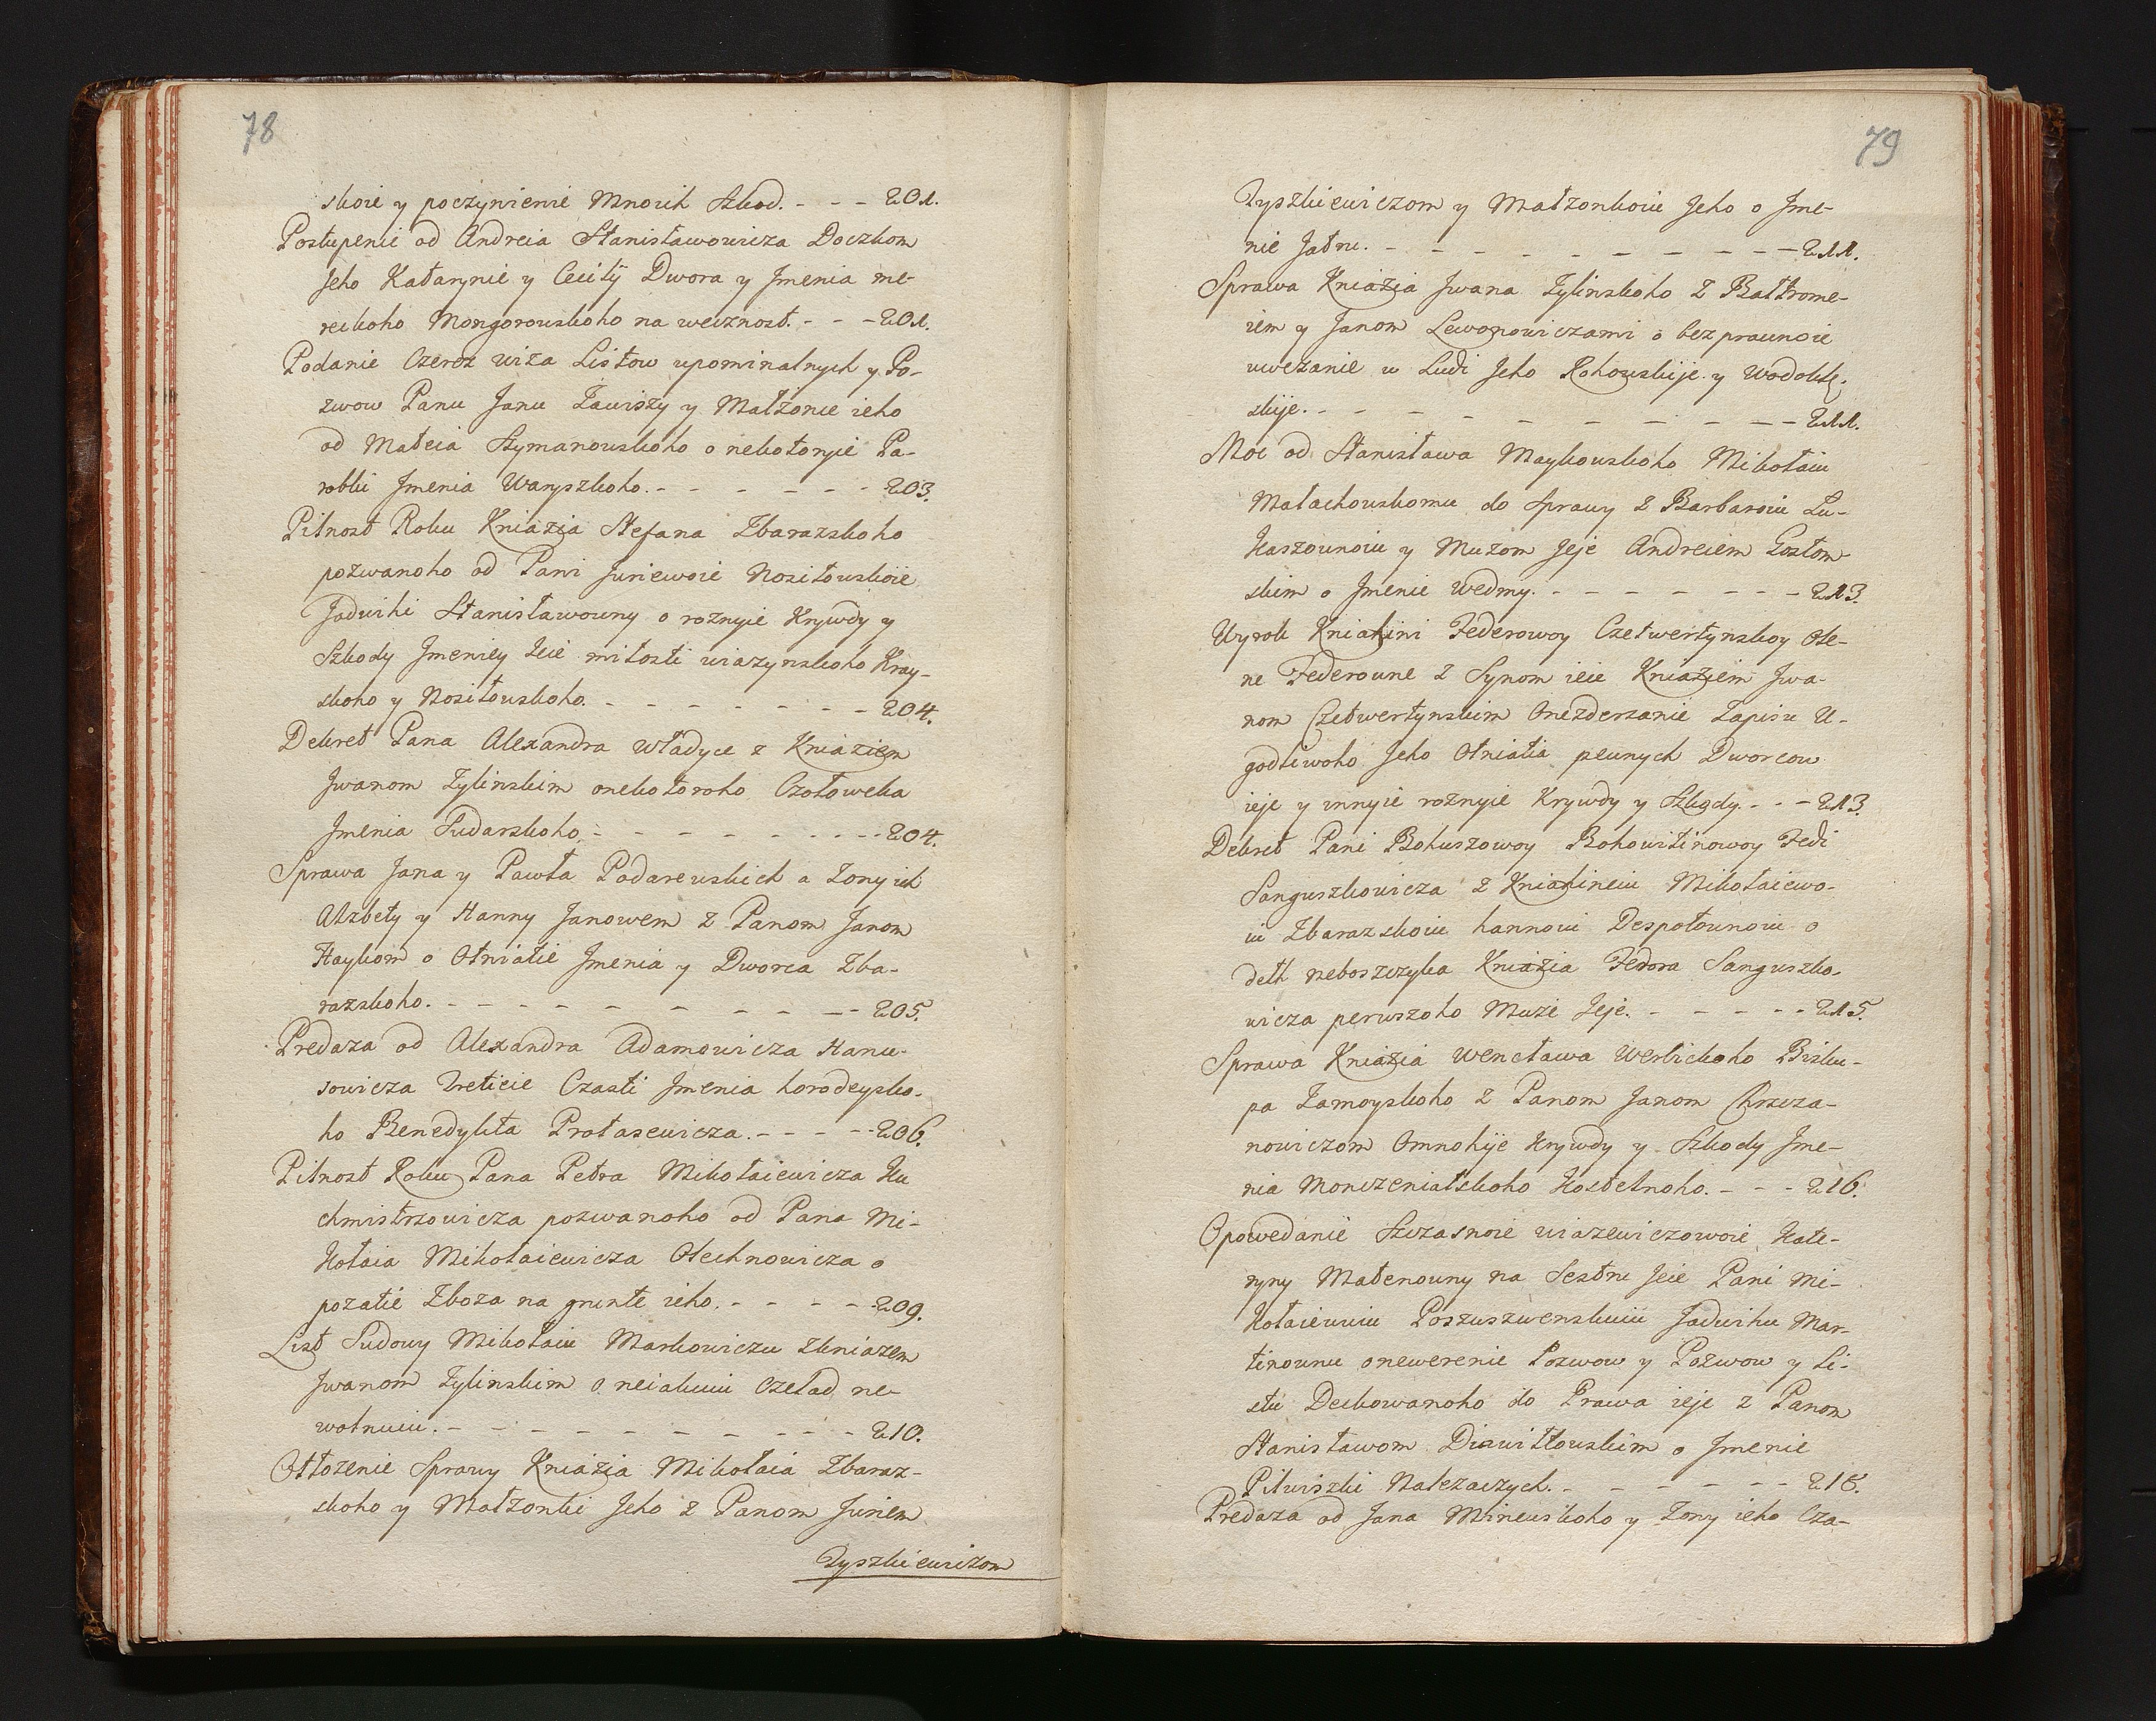 78
skoie y poczynienie Mnoich szkod. - - - 201.
Postupenie od Andreia Stanisławowicza Doczkom
Jeho Katarynie y Cecilÿ Dwora y Jmenia me-
reckoho Mongorowskoho na wecznost. - - - 201.
Podanie Czerez wiza Listow upominalnych y Po-
zwow Panu Janu Zawiszy y Małżonce ieho
od Mateia Szymanowskoho o nekotoryie Pa-
robki Jmenia Waryszkoho. - - - - - - 203.
Pilnost Roku Kniazia Stefana Zbarazskoho
pozwanoho od Pani Juriewoie Nositowskoie
Jadwihi Stanisławowny o roznyie Krywdy y
Szkody Jmeniey Ieie miłosti wiazynskoho Kray-
skoho y Nosiłowskoho. - - - - - - - 204.
Dekret Pana Alexandra władyce z Kniaziem
Jwanom Zylinskim onekotoroho Czołoweka
Jmenia Sudarskoho. - - - - - - - - 204.
Sprawa Jana y Pawła Podarewskich a Zony ich
Alzbety y Hanny Janowem z Panom Janom
Haykom o Otniatie Jmenia y Dworca Zba-
razskoho. - - - - - - - - - 205.
Predaza od Alexandra Adamowicza Hanu-
sowicza Treticie Czasti Jmenia horodeysko-
ho Benedykta Protasewicza. - - - - - 206.
Pilnost Roku Pana Petra Mikołaiewicza Ku
chmistrzowicza pozwanoho od Pana Mi-
kołaia Mikołaiewicza Olechnowicza o
pozatie Zboza na grunte ieho. - - - - - 209.
List Sudowy Mikołaiu Markowiczu zkniazem
Jwanom Zylinskim o neiakuiu Czelad ne-
wolnuiu. - - - - - - - - - 210.
Otłozenie Sprawy Kniazia Mikołaia Zbaraz-
skoho y Małzonki Jeho z Panom Juriem
Tyszkiewiczom
79
Tyszkiewiczom y Małzonkoiu Jeho o Jme-
nie Jatru. - - - - - - - - - - 211.
Sprawa Kniazia Jwana Zylinskoho z Bałtrome-
iem y Janom Lewonowiczami o bezprawnoie
uwezanie w Ludi Jeho Rohowskije y Wodokte-
skije. - - - - - - - - - 211.
Moc od Stanisława Maykowskoho Mikołaiu
Małachowskomu do Sprawy z Barbaroiu Lu-
kaszownoiu y Muzom Jeje Andreiem Gostom-
skim o Jmenie Wedmy. - - - - - - - 213.
Wyrok Kniahini Federowoy Czetwertynskoy Ole-
ne Federowne z Synom ieie Kniaziem Jwa-
nom Czetwertynskim Onezderzanie Zapisu U-
godliwoho Jeho Otniatia pewnych Dworcow
ieje y innyie roznyie Krywdy y Szkody. - - - 213.
Dekret Pani Bohuszowoy Bohowitinowoy Fedi
Sanguszkowicza z Kniahineiu Mikołaiewo-
iu Zbarazskoiu hannoiu Despotownoiu o
delk neboszczyka Kniazia Fedora Sanguszko-
wicza perwszoho Muze Jeje. - - - - - 215.
Sprawa Kniazia Wencława Werbickoho Bisku-
pa Zamoyskoho z Panom Janom Chrcza-
nowiczom Omnohije Krywdy y Szkody Jme-
nia Monczeniatskoho Kostelnoho. - - - 216.
Opowedanie Szczasnoie wiazewiczowoie Kate-
ryny Matenowny na Sestru Jeie Pani Mi-
kołaiewuiu Poszuszwenskuiu Jadwihu Mar-
tinownu onewerenie Pozwow y Pozwow y Li-
stu Deckowanoho do Prawa ieje z Panom
Stanisławom Diewiłtowskim o Jmenie
Pilwiszki Nalezaczych. - - - - - - 218.
Predaza od Jana Minewskoho y Zony ieho Cza-